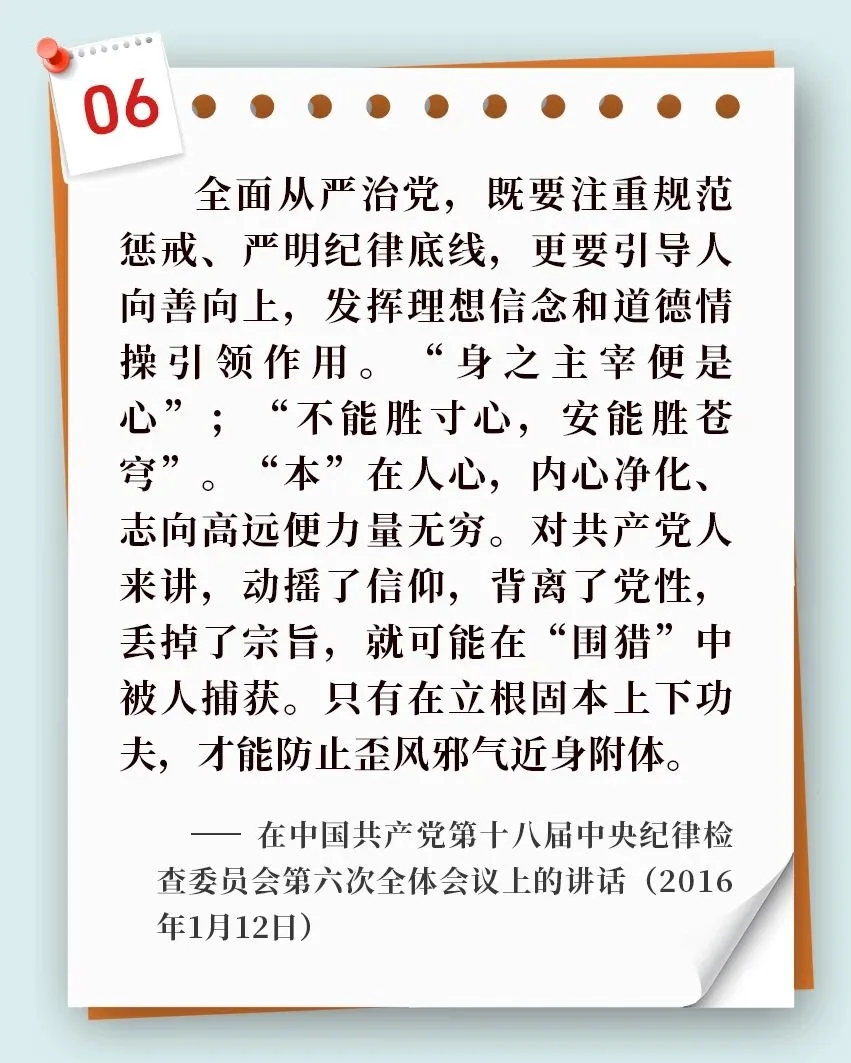 06
全面从严治党，既要注重规范
惩戒、严明纪律底线，更要引导人
向善向上，发挥理想信念和道德情
操引领作用。“身之主宰便是
心”；“不能胜寸心，安能胜苍
穹”。“本”在人心，内心净化、
志向高远便力量无穷。对共产党人
来讲，动摇了信仰，背离了党性，
丢掉了宗旨，就可能在“围猎”中
被人捕获。只有在立根固本上下功
夫，才能防止歪风邪气近身附体。
—— 在中国共产党第十八届中央纪律检
查委员会第六次全体会议上的讲话（2016
年1月12日）